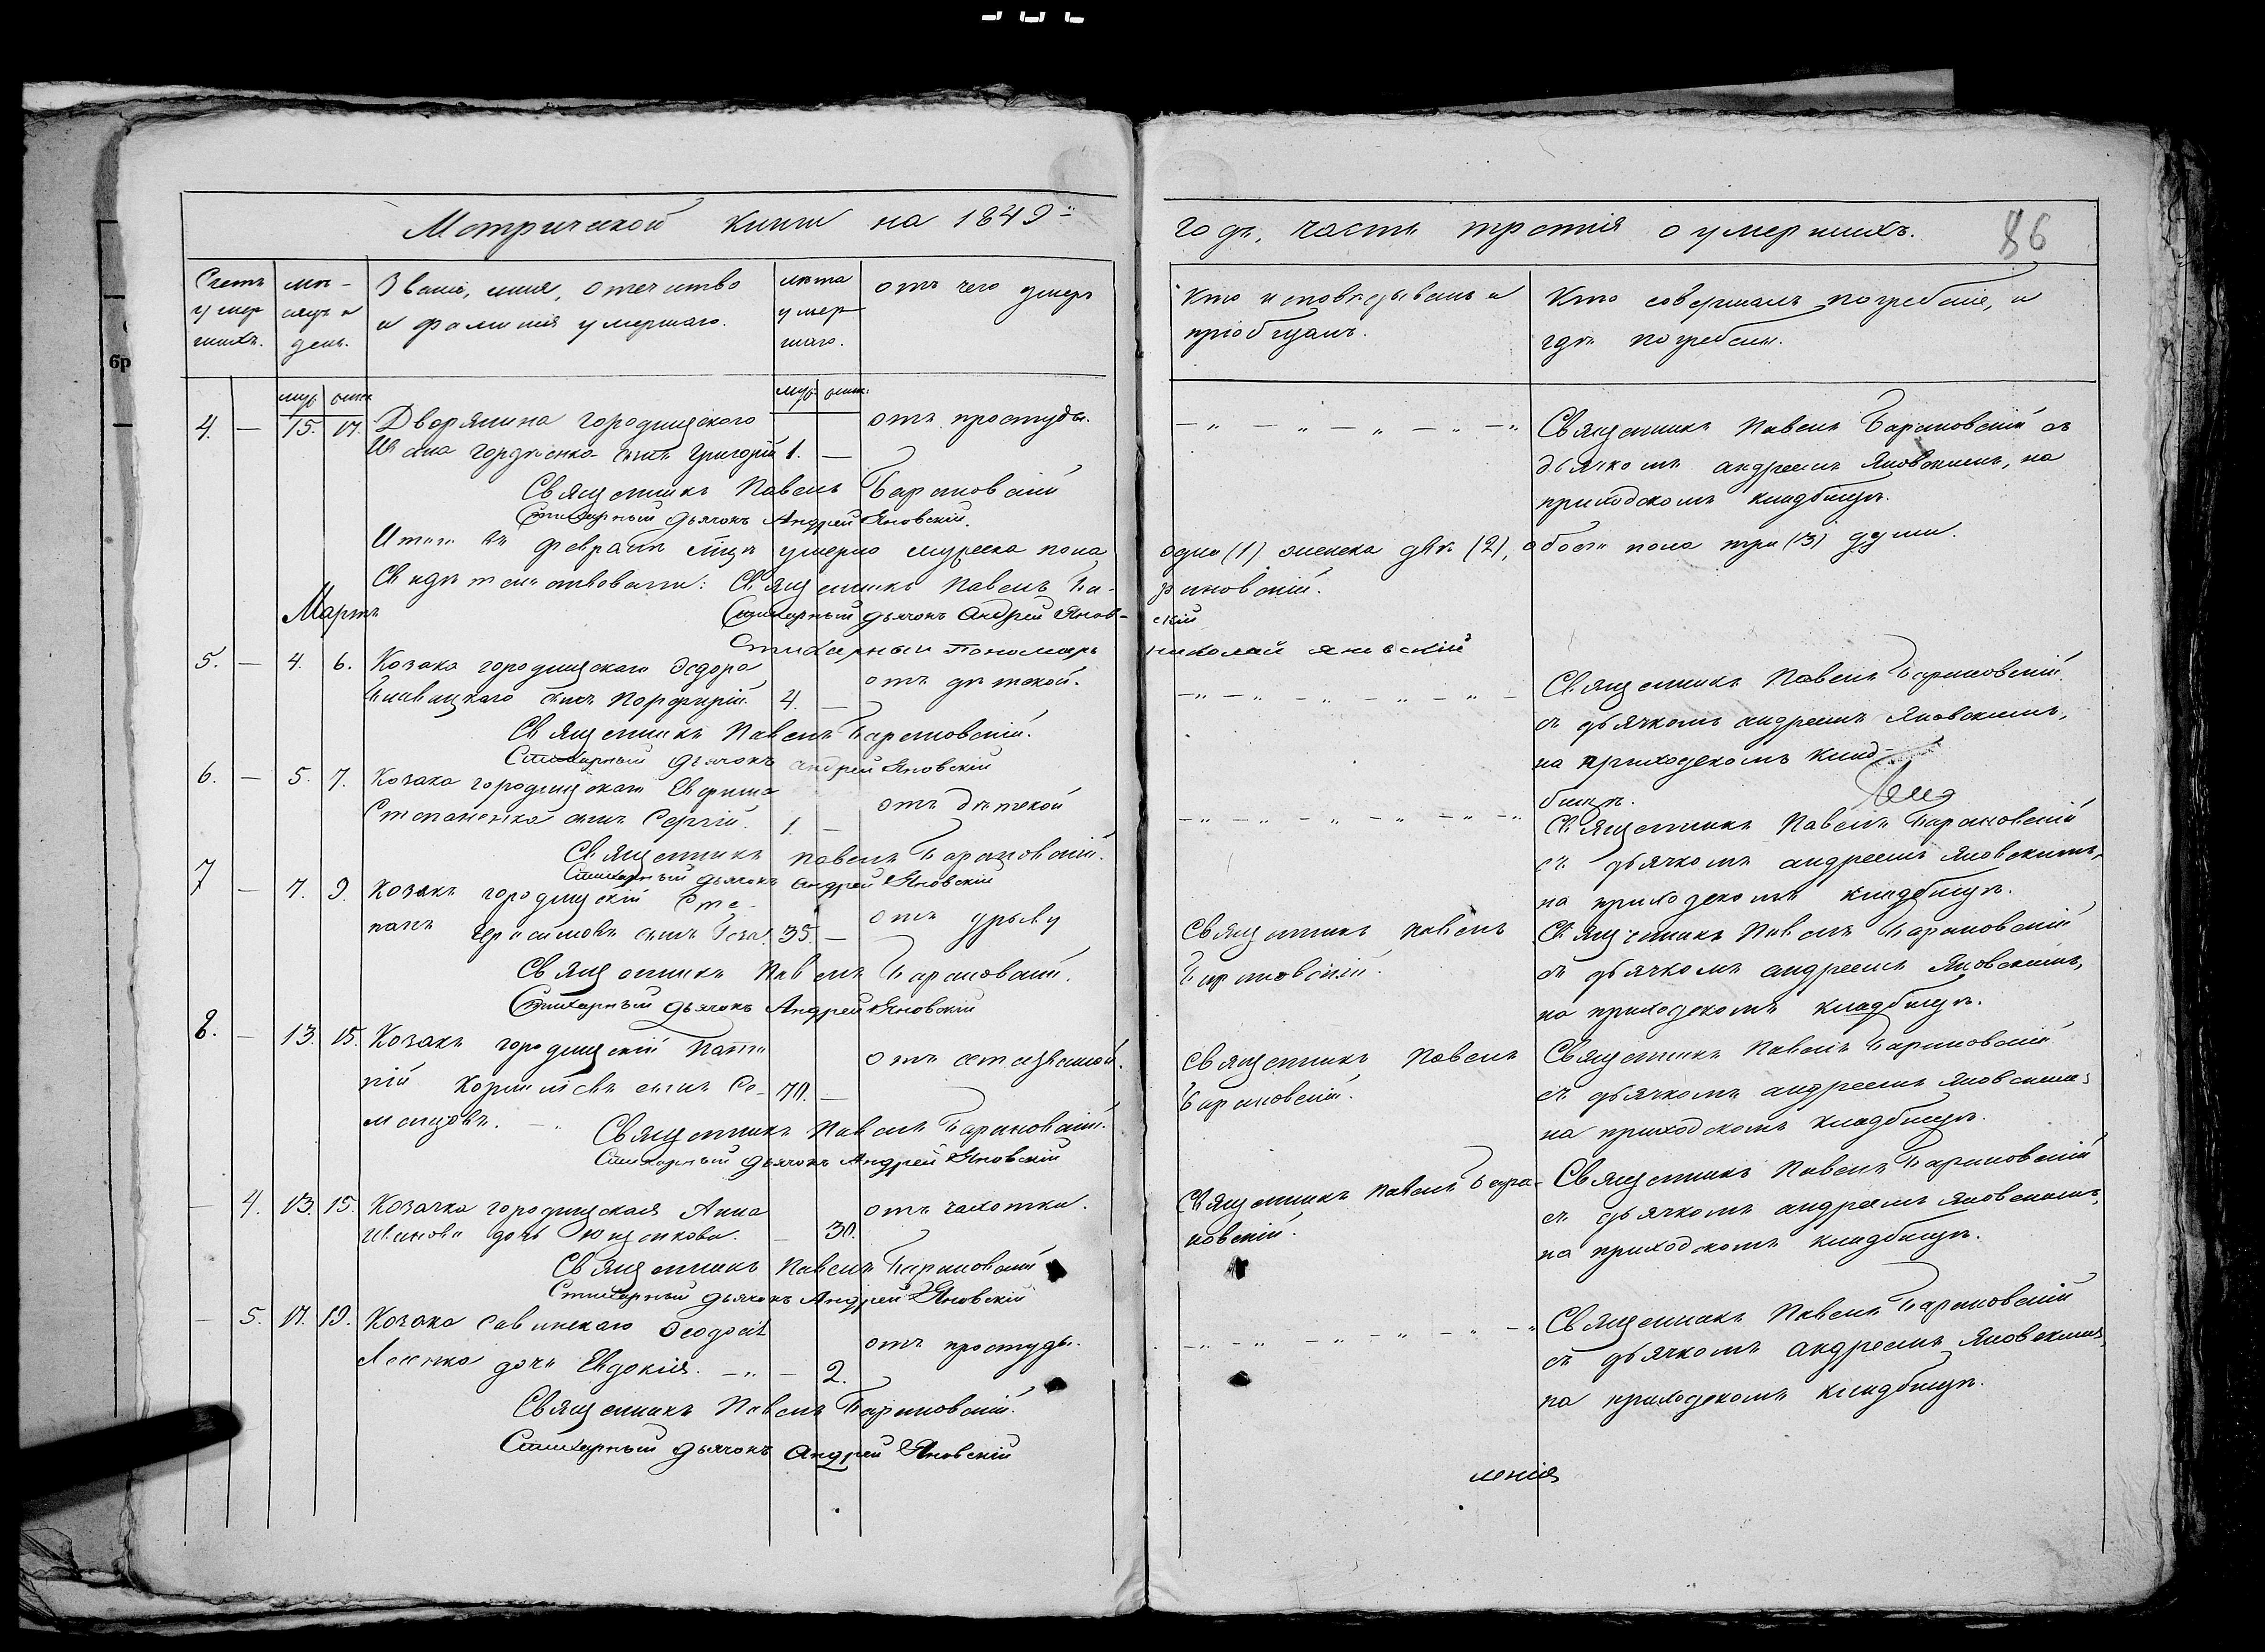 Метрической книги на 1849й
Счетъ умер шихъ.
мѣ- сяцъ и день.
Званіе, имя, отечество
и фамилія умершаго.
лѣта умер шаго.
отъ чего умеръ
4. — 15. 17. Дворянина городищского
Ивана Гордѣенка сынъ Григорій 1. — отъ простуды.
Священникъ Павелъ Барановскій
Стихарный дьячокъ Андрей Яновскій.
Итого въ февралѣ мцѣ умерло мужеска пола
Свидѣтельствовали: Священникъ Павелъ Ба-
Мартъ
Стихарный дьячокъ Андрей Янов-
Стихарный Пономарь
5. — 4. 6. Козака городищскаго Ѳедора
сынъ Порфирій. 4. — отъ дѣтской.
Священникъ Павелъ Барановскій.
Стихарный дьячокъ Андрей Яновскій
6. — 5. 7. Козака городищскаго Евфима
Степаненка сынъ Сергій. 1. — отъ дѣтской
Священникъ Павелъ Барановскій.
Стихарный дьячокъ Андрей Яновскій
7 — 7. 9. Козакъ городищскій Сте-
панъ Герасимовъ сынъ 35. — отъ
Священникъ Павелъ Барановскій.
Стихарный дьячокъ Андрей Яновскій
8. — 13. 15. Козакъ городищскій
Корнилієвъ сынъ 70. — отъ
Священникъ Павелъ Барановскій.
Стихарный дьячокъ Андрей Яновскій
— 4. 13. 15. Козачка городищская Анна
Иванова дочь — 30. отъ чахотки.
Священникъ Павелъ Барановскій
Стихарный дьячокъ Андрей Яновскій
— 5. 17. 19. Козака Савинскаго
дочь Евдокія. — „ — 2. отъ простуды.
Священникъ Павелъ Барановскій.
Стихарный дьячокъ Андрей Яновскій
годъ, часть третія о умершихъ.
86
Кто исповѣдывалъ и
пріобщалъ.
Кто совершалъ погребеніе, и
гдѣ погребены.
Священникъ Павелъ Барановскій съ
дьячкомъ Андреемъ Яновскимъ, на
приходскомъ кладбищѣ.
одна (1) женска двѣ (2), обоего пола три (3) души.
рановскій.
скій
Николай Яновскій
Священникъ Павелъ Барановскій
съ дьячкомъ Андреемъ Яновскимъ,
на приходскомъ клад-
бищѣ.
Священникъ Павелъ Барановскій
съ дьячкомъ Андреемъ Яновскимъ,
на приходскомъ кладбищѣ.
Священникъ Павелъ
Барановскій.
Священникъ Павелъ Барановскій
съ дьячкомъ Андреемъ Яновскимъ,
на приходскомъ кладбищѣ.
Священникъ Павелъ
Барановскій.
Священникъ Павелъ Барановскій
съ дьячкомъ Андреемъ Яновскимъ,
на приходскомъ кладбищѣ.
Священникъ Павелъ Бара-
новскій.
Священникъ Павелъ Барановскій
съ дьячкомъ Андреемъ Яновскимъ,
на приходскомъ кладбищѣ.
Священникъ Павелъ Барановскій
съ дьячкомъ Андреемъ Яновскимъ,
на приходскомъ кладбищѣ.
ленія